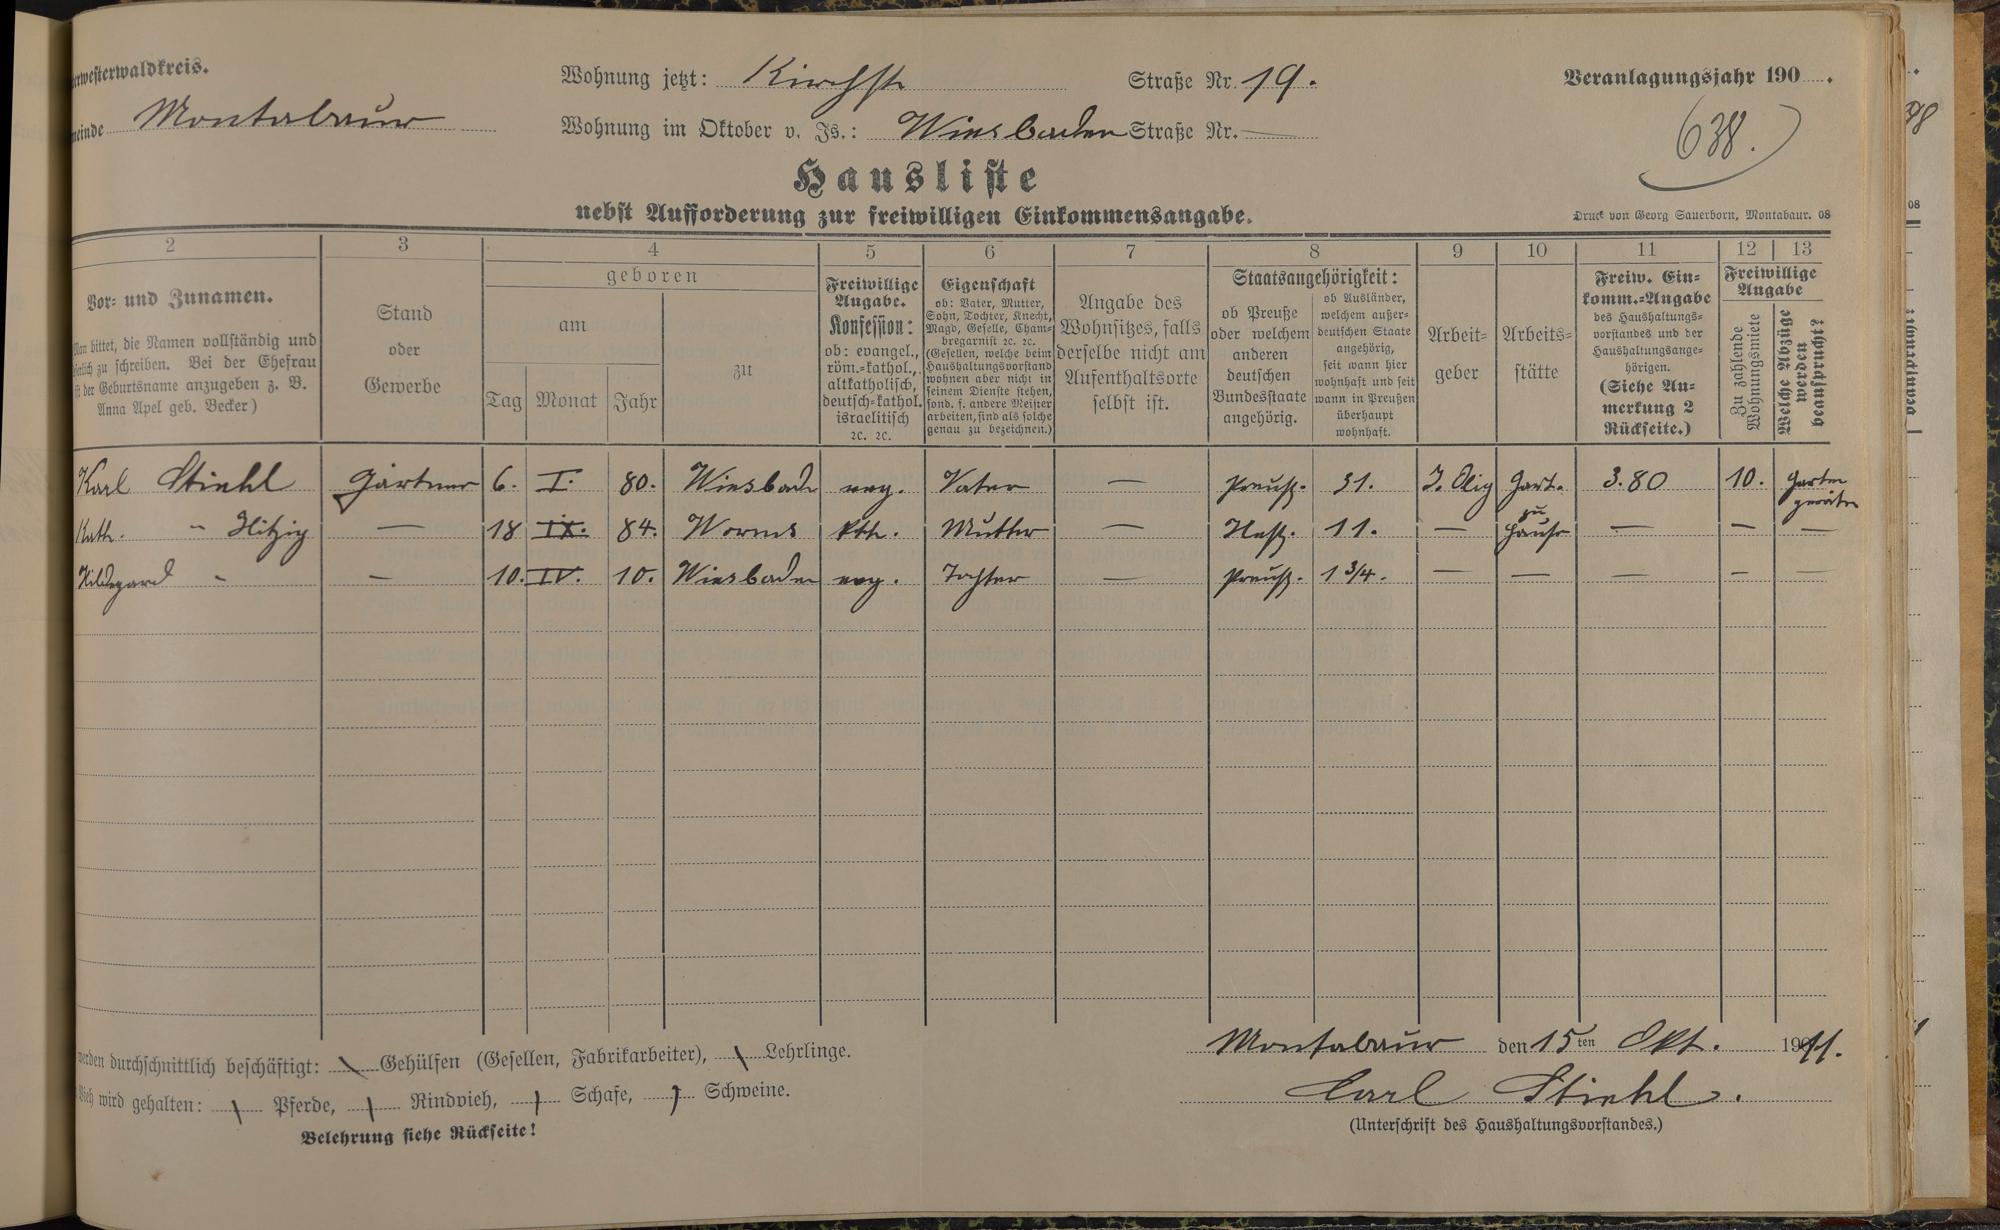 erwesterwaldkreis.
Wohnung jetzt: Kirchstr Straße Nr. 19.
Veranlagungsjahr 190 .
meinde Montabaur
Wohnung im Oktober v. Js.: Wiesbaden Straße Nr. —
638.
Hausliste
nebst Aufforderung zur freiwilligen Einkommensangabe.
Druck von Georg Sauerborn, Montabaur. 08
2 3 4 5 6 7 8 9 10 11 12 13
Vor- und Zunamen.
Man bittet, die Namen vollständig und
serlich zu schreiben. Bei der Ehefrau
ist der Geburtsname anzugeben z. B.
Anna Apel geb. Becker)
Stand
oder
Gewerbe
geboren
am
Tag Monat Jahr
zu
Freiwillige
Angabe.
Konfession:
ob: evangel.,
röm.-kathol.,
altkatholisch,
deutsch-kathol.
israelitisch
2c. 2c.
Eigenschaft
ob: Vater, Mutter,
Sohn, Tochter, Knecht,
Magd, Geselle, Cham-
bregarnist 2c. 2c.
(Gesellen, welche beim
Haushaltungsvorstand
wohnen aber nicht in
seinem Dienste stehen,
sond. f. andere Meister
arbeiten, sind als solche
genau zu bezeichnen.)
Angabe des
Wohnsitzes, falls
derselbe nicht am
Aufenthaltsorte
selbst ist.
Staatsangehörigkeit:
ob Preuße
oder welchem
anderen
deutschen
Bundesstaate
angehörig.
ob Ausländer,
welchem außer-
deutschen Staate
angehörig,
seit wann hier
wohnhaft und seit
wann in Preußen
überhaupt
wohnhaft.
Arbeit-
geber
Arbeits-
stätte
Freiw. Ein-
komm.-Angabe
des Haushaltungs-
vorstandes und der
Haushaltungsange-
hörigen.
(Siehe An-
merkung 2
Rückseite.)
Freiwillige
Angabe
Zu zahlende
Wohnungsmiete
Welche Abzüge
werden
beansprucht?
Karl Stiehl Gärtner 6. I. 80. Wiesbaden evg. Vater — Preuß. 31. Gart. 3.80 10. Garten
geräte
Kath. " Hitzig — 18 IX. 84. Worms kth. Mutter — Hess. 11. — zu Hause — — —
Hildegard " — 10. IV. 10. Wiesbaden evg. Tochter — Preuß. 1 3/4. — — — — —
werden durchschnittlich beschäftigt: Gehülfen (Gesellen, Fabrikarbeiter), Lehrlinge.
Vieh wird gehalten: Pferde, Rindvieh, Schafe, Schweine.
Belehrung siehe Rückseite!
Montabaur den 15ten Okt. 1911.
Carl Stiehl.
(Unterschrift des Haushaltungsvorstandes.)